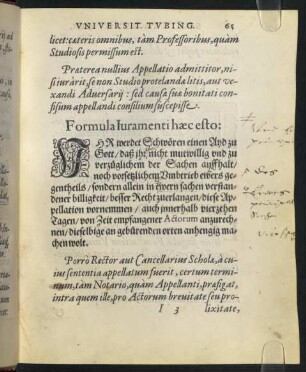 VNIVERSIT. TVBING. 65
licet: cæteris omnibus, tàm Professoribus, quàm
Studiosis permissum est.
Præterea nullius Appellatio admittitor, ni-
si iurârit, se non Studio protelandæ litis, aut ve-
xandi Aduersarij: sed causæ suæ bonitati confi-
sium appellandi consilium suscepisse.
Formula Iuramenti hæc esto:
IHR werdet Schwören einen Ayd zu
Gott, daß ihr nicht mutwillig vnd zu
verzüglichem der Sachen auffhalt,
noch vorsetzlichem Vmbtrieb ewers ge-
gentheils / sondern allein in ewern sachen verstan-
dener billigkeit / besser Recht zuerlangen / diese Ap-
pellation vornemmen / auch innerhalb vierzehen
Tagen / von Zeit empfangener Actorum anzurech-
nen / dieselbige an gebürenden orten anhengig ma-
chen wolt.
Porrò Rector aut Cancellarius Scholæ, à cu-
ius sententia appellatum fuerit, certum termi-
num, tàm Notario, quàm Appellanti, præfigat,
intra quem ille, pro Actorum breuitate seu pro-
I 3 lixitate,